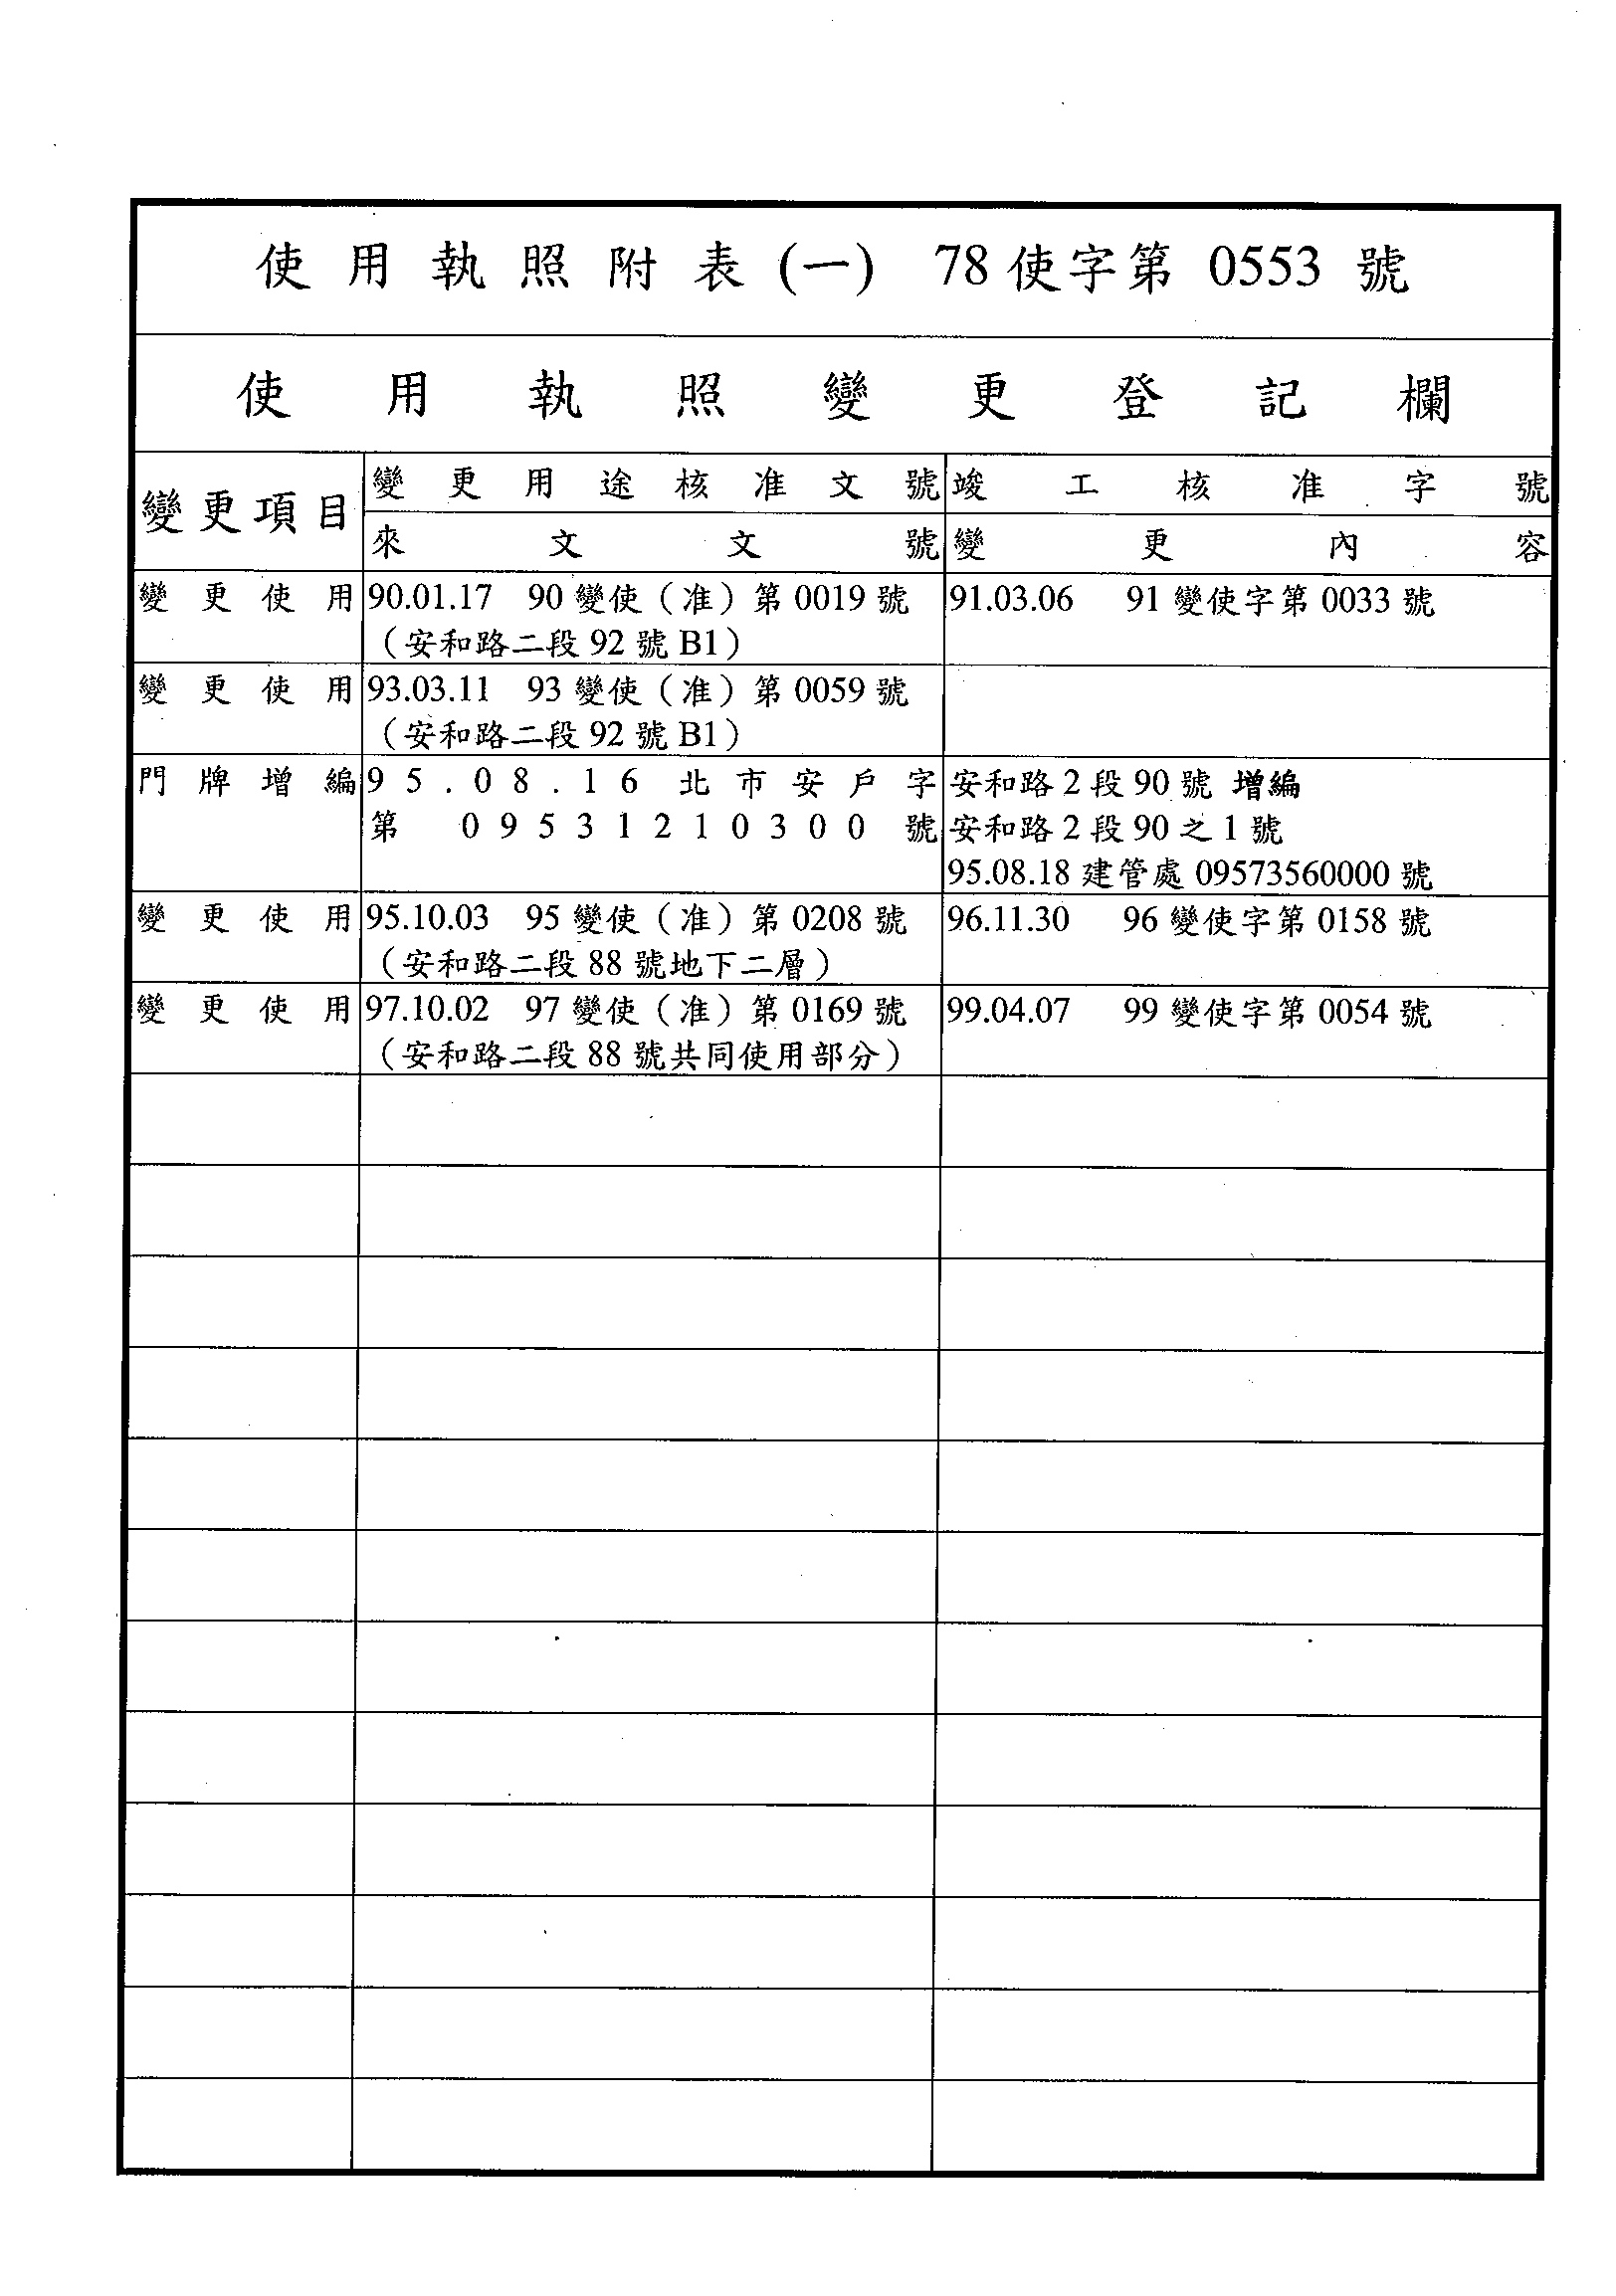 使用執照附表(一) 78使字第 0553 號
使用執照變更登記欄
變更項目
變更用途核准文號 竣工核准字號
來文文號 變更內容
變更使用 90.01.17 90變使（准）第0019號 91.03.06 91變使字第0033號
（安和路二段92號B1）
變更使用 93.03.11 93變使（准）第0059號
（安和路二段92號B1）
門牌增編 95.08.16北市安戶字 安和路2段90號 增編
第 09531210300 號 安和路2段90之1號
95.08.18建管處09573560000號
變更使用 95.10.03 95變使（准）第0208號 96.11.30 96變使字第0158號
（安和路二段88號地下二層）
變更使用 97.10.02 97變使（准）第0169號 99.04.07 99變使字第0054號
（安和路二段88號共同使用部分）